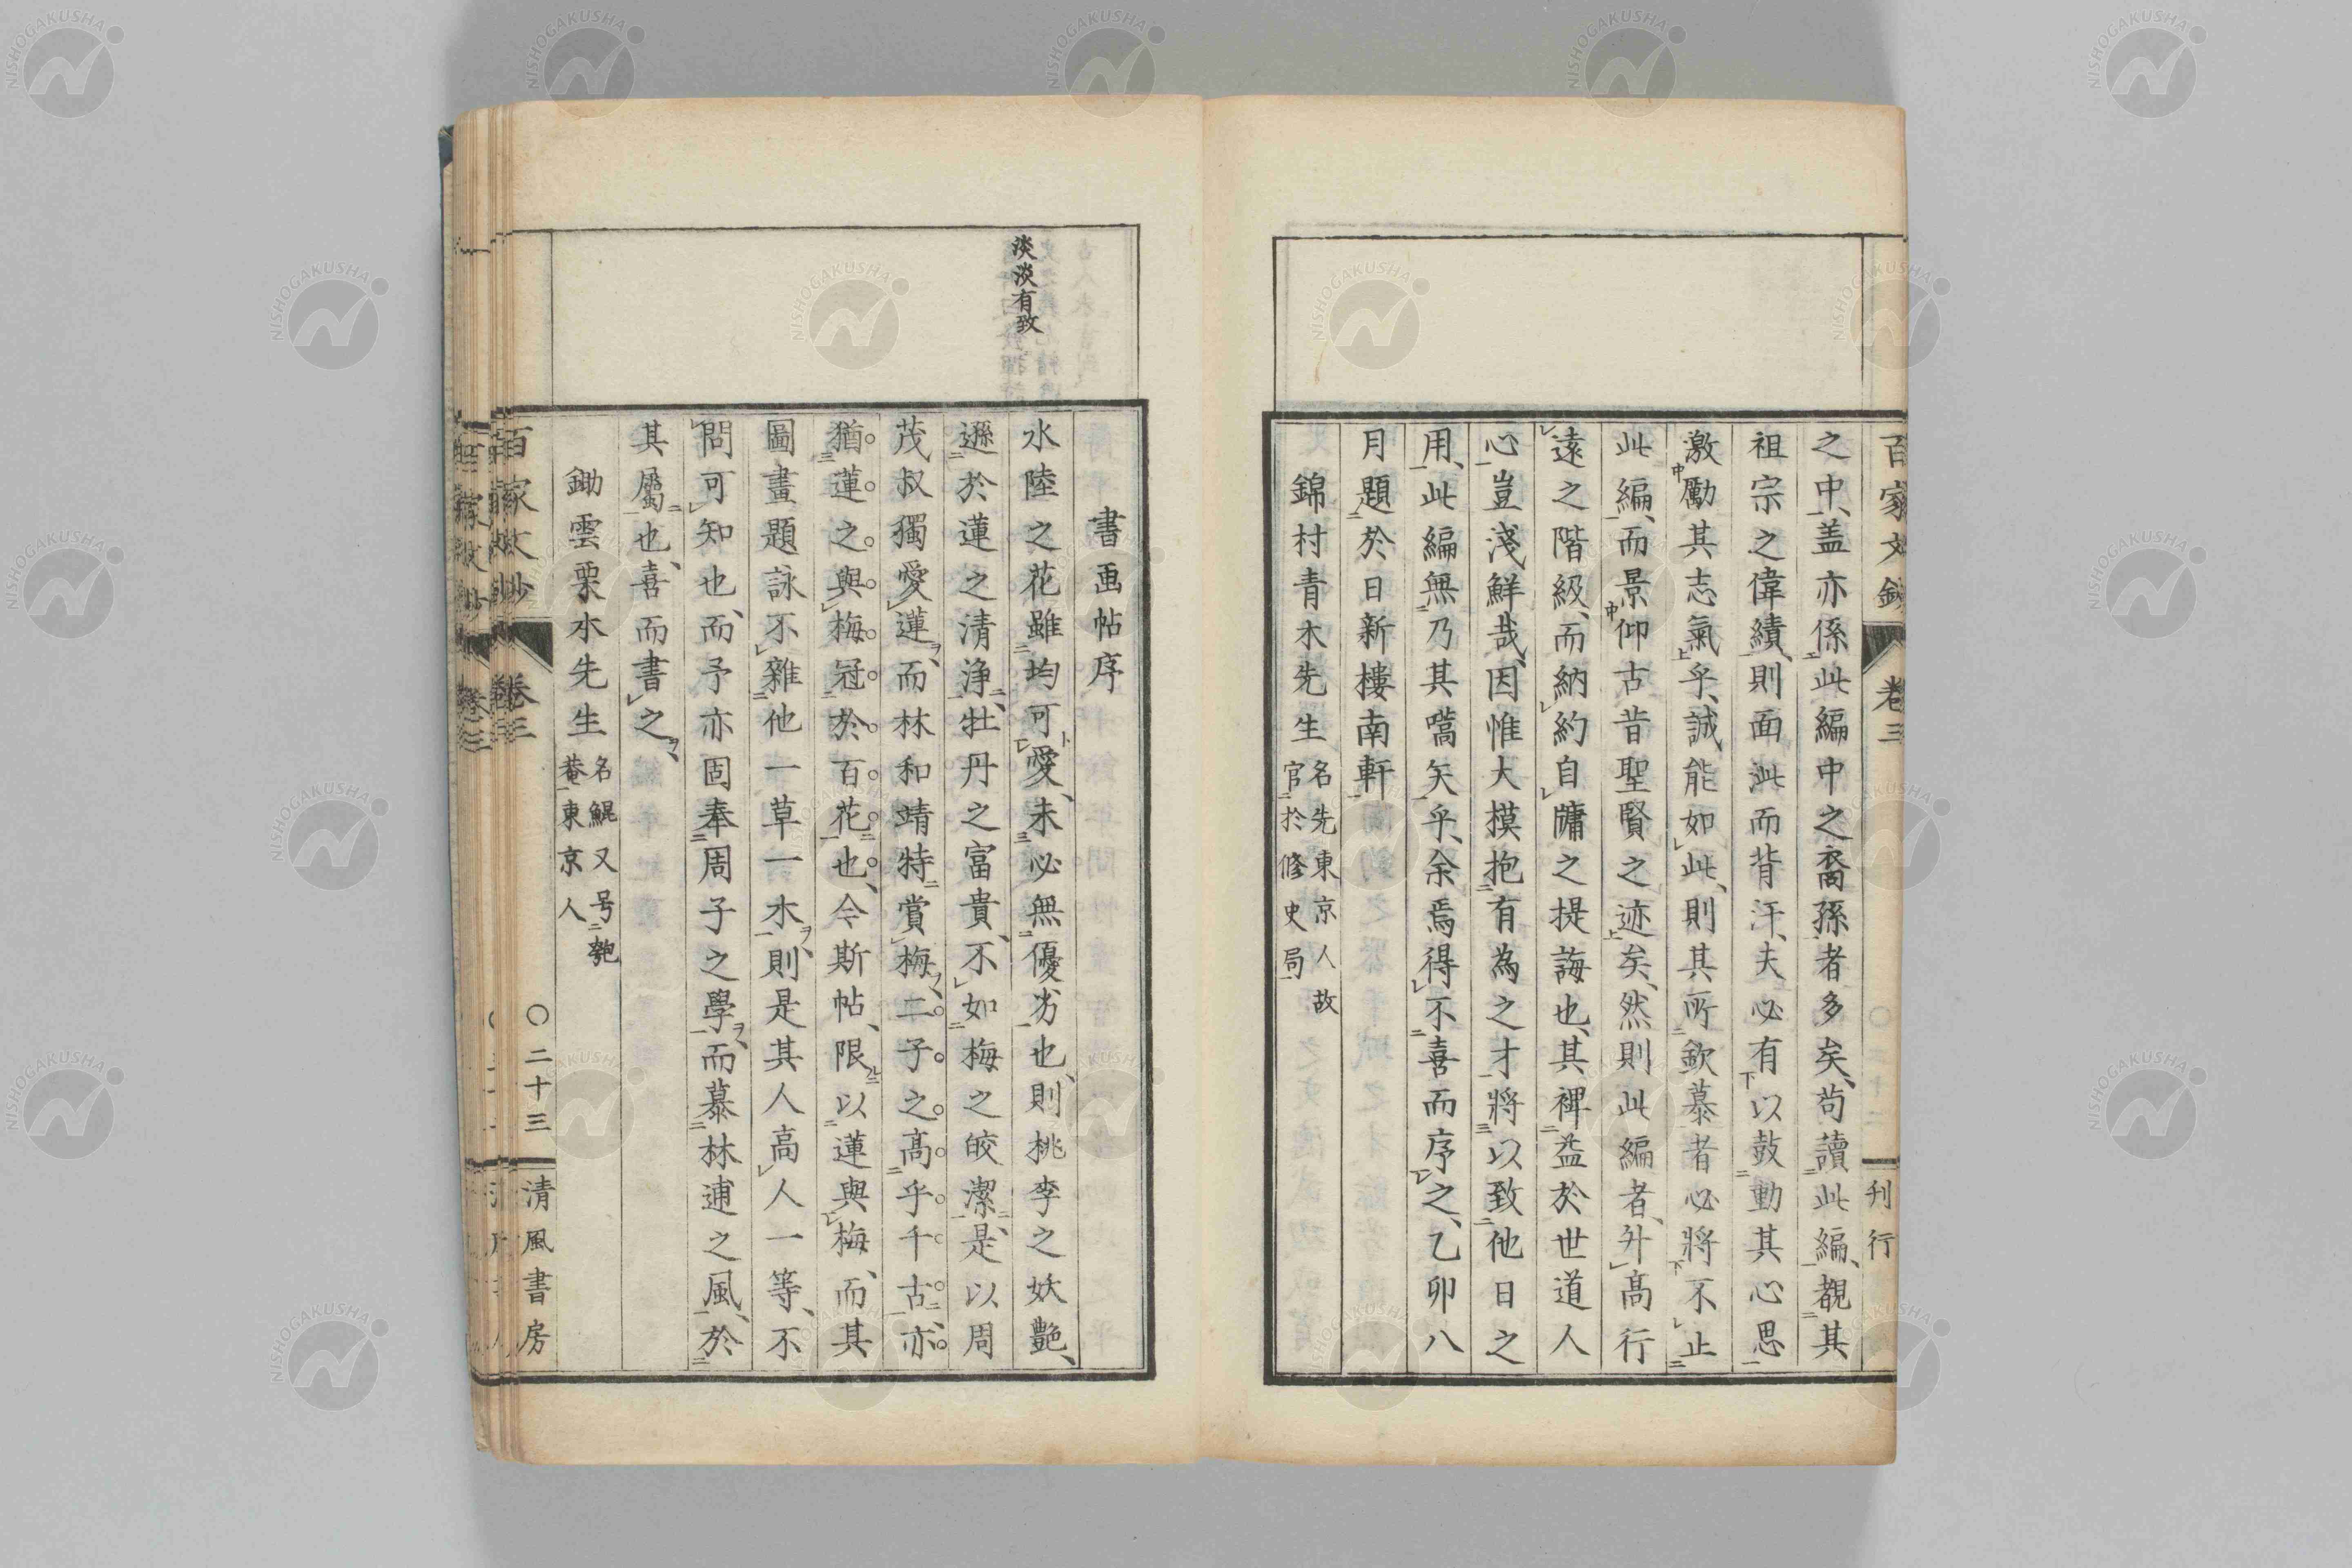 百家文鈔
卷三
刊行
之中、盖亦係此編中之裔孫者多矣、苟讀此編、覩其
祖宗之偉績、則面泚而背汗、夫必有以鼓動其心思
激勵其志氣乎、誠能如此、則其所欽慕者必將不止
此編、而景仰古昔聖賢之迹矣、然則此編者、升高行
遠之階級、而納約自牖之提誨也、其裨益於世道人
心豈淺鮮哉、因惟大摸抱有為之才、將以致他日之
用、此編無乃其嚆矢乎、余焉得不喜而序之、乙卯八
月題於日新樓南軒
錦村青木先生 名先東京人故
官於修史局
淡淡有致
書画帖序
水陸之花雖均可愛、未必無優劣也、則桃李之妖艶、
遜於蓮之清淨、牡丹之富貴、不如梅之皎潔、是以周
茂叔獨愛蓮、而林和靖特賞梅、二子之高乎千古、亦
猶蓮之與梅冠於百花也、今斯帖、限以蓮與梅、而其
圖畫題詠不雜他一草一木、則是其人高人一等、不
問可知也、而予亦固奉周子之學、而慕林逋之風、於
其屬也、喜而書之、
鋤雲栗本先生 名鯤又号匏
菴東京人
百家文鈔
卷三
〇二十三
清風書房